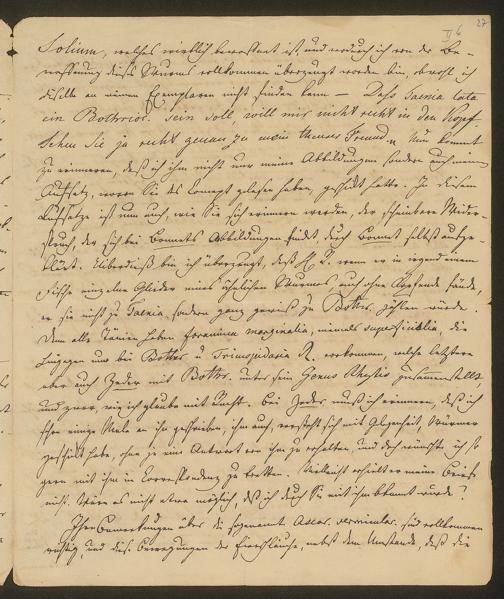 27
II 6
Solium, welches wirklich bewaffnet ist, und wodurch ich von der Be-
waffnung dieses Wurms vollkommen überzeugt worden bin, obwohl ich
dieselbe an meinen Exemplaren nicht finden kann — Daß Taenia lata
ein Bothrioc. sein soll, will mir nicht recht in den Kopf
Sehen Sie ja recht genau zu mein theurer Freund. Nun kommt
zu erinnern, daß ich ihm nicht nur meine Abbildungen sondern auch meinen
Aufsatz, wovon Sie das Concept gelesen haben, geschickt hatte. In diesem
Aufsatze ist nun auch, wie Sie sich erinnern werden, der scheinbare Wider-
spruch, der sich bei Bonnets Abbildungen findet, durch Bonnet selbst aufge-
klärt. Überdieß bin ich überzeugt, daß H. R. wenn er in irgend einem
Fische einzelne Glieder eines ähnlichen Wurmes auch ohne Kopfende fände,
er sie nicht zu Taenia, sondern ganz gewiß zu Bothr. zählen würde.
Denn alle Tänien haben foramina marginalia, niemals superficialia, die
hingegen nur bei Bothr. u Tricuspidaria R. vorkommen, welche letztere
aber auch Zeder mit Bothr. unter sein Genus Rhytis zusammenstellt,
und zwar, wie ich glaube mit Recht. Bei Zeder muß ich erinnern, daß ich
schon einige Male an ihn geschrieben, ihm auch, versteht sich mit Gelegenheit, Würmer
geschickt habe, ohne je eine Antwort von ihm zu erhalten, und doch wünschte ich so
gern mit ihm in Correspondenz zu tretten. Vielleicht erhielt er meine Briefe
nicht. Wäre es nicht etwa möglich, daß ich durch Sie mit ihm bekannt würde?
Ihre Bemerkungen über die sogenannte Ascar. vermicular. sind vollkommen
richtig, und diese Bewegungen der Eierschläuche, nebst dem Umstande, daß die